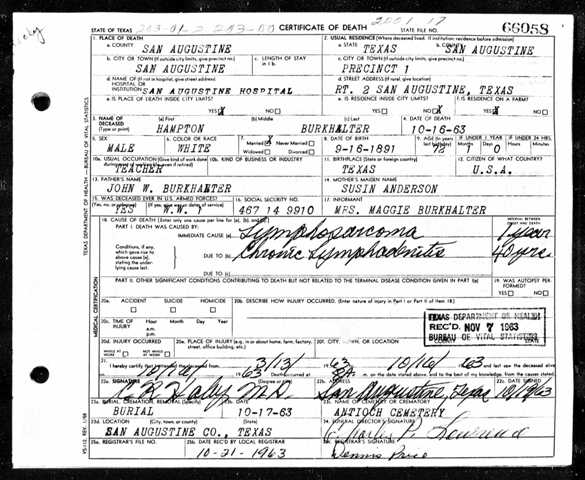 203-01-2 203-00 2001 17
STATE OF TEXAS CERTIFICATE OF DEATH STATE FILE NO. 66058
1. PLACE OF DEATH 2. USUAL RESIDENCE (Where deceased lived. If institution: residence before admission)
a. COUNTY SAN AUGUSTINE a. STATE TEXAS b. COUNTY SAN AUGUSTINE
b. CITY OR TOWN (If outside city limits, give precinct no.) c. LENGTH OF STAY in 1 b. c. CITY OR TOWN (If outside city limits, give precinct no.)
SAN AUGUSTINE PRECINCT 1
d. NAME OF (If not in hospital, give street address) HOSPITAL OR INSTITUTION SAN AUGUSTINE HOSPITAL d. STREET ADDRESS (If rural, give location) RT. 2 SAN AUGUSTINE, TEXAS
e. IS PLACE OF DEATH INSIDE CITY LIMITS? e. IS RESIDENCE INSIDE CITY LIMITS? f. IS RESIDENCE ON A FARM?
YES X NO YES NO X YES X NO
3. NAME OF DECEASED (Type or print) (a) First (b) Middle (c) Last 4. DATE OF DEATH
HAMPTON BURKHALTER 10-16-63
5. SEX 6. COLOR OR RACE 7. Married X Never Married Widowed Divorced 8. DATE OF BIRTH 9. AGE (In years last birthday) IF UNDER 1 YEAR IF UNDER 24 HRS.
MALE WHITE 9-16-1891 72 Months 1 Days 0 Hours Min.
10a. USUAL OCCUPATION (Give kind of work done during most of working life, even if retired) 10b. KIND OF BUSINESS OR INDUSTRY 11. BIRTHPLACE (State or foreign country) 12. CITIZEN OF WHAT COUNTRY?
TEACHER TEXAS U.S.A.
13. FATHER'S NAME 14. MOTHER'S MAIDEN NAME
JOHN W. BURKHALTER SUSIN ANDERSON
15. WAS DECEASED EVER IN U.S. ARMED FORCES? 16. SOCIAL SECURITY NO. 17. INFORMANT
YES W.W. I 467 14 9910 MRS. MAGGIE BURKHALTER
18. CAUSE OF DEATH [Enter only one cause per line for (a), (b), and (c).] INTERVAL BETWEEN ONSET AND DEATH
PART I. DEATH WAS CAUSED BY: IMMEDIATE CAUSE (a) Lymphosarcoma 1 year
Conditions, if any, which gave rise to above cause (a), stating the underlying cause last. DUE TO (b) Chronic Lymphadenitis 40 yrs.
DUE TO (c)
PART II. OTHER SIGNIFICANT CONDITIONS CONTRIBUTING TO DEATH BUT NOT RELATED TO THE TERMINAL DISEASE CONDITION GIVEN IN PART I(a) 19. WAS AUTOPSY PERFORMED?
YES NO
20a. ACCIDENT SUICIDE HOMICIDE 20b. DESCRIBE HOW INJURY OCCURRED. (Enter nature of injury in Part I or Part II of item 18.)
20c. TIME OF INJURY Hour a.m. p.m. Month Day Year
TEXAS DEPARTMENT OF HEALTH
REC'D. NOV 7 1963
BUREAU OF VITAL STATISTICS
20d. INJURY OCCURRED WHILE AT WORK NOT WHILE AT WORK 20e. PLACE OF INJURY (e.g. in or about home, farm, factory, street, office building, etc.) 20f. CITY, TOWN, OR LOCATION COUNTY STATE
21. I hereby certify that I attended the deceased from 3/13/ 63 10/16/ 63
Death occurred at m. on the date stated above, and to the best of my knowledge, from the causes stated.
22a. SIGNATURE (Degree or title) 22b. ADDRESS 22c. DATE SIGNED
Haley M.D. San Augustine, Texas
23a. BURIAL, CREMATION, REMOVAL (Specify) 23b. DATE 23c. NAME OF CEMETERY OR CREMATORY
BURIAL 10-17-63 ANTIOCH CEMETERY
23d. LOCATION SAN AUGUSTINE CO., TEXAS 24. FUNERAL DIRECTOR'S SIGNATURE Charles
25a. REGISTRAR'S FILE NO. 25b. DATE REC'D BY LOCAL REGISTRAR 25c. REGISTRAR'S SIGNATURE
10-21-1963 Dennis Price
TEXAS DEPARTMENT OF HEALTH - BUREAU OF VITAL STATISTICS
MEDICAL CERTIFICATION